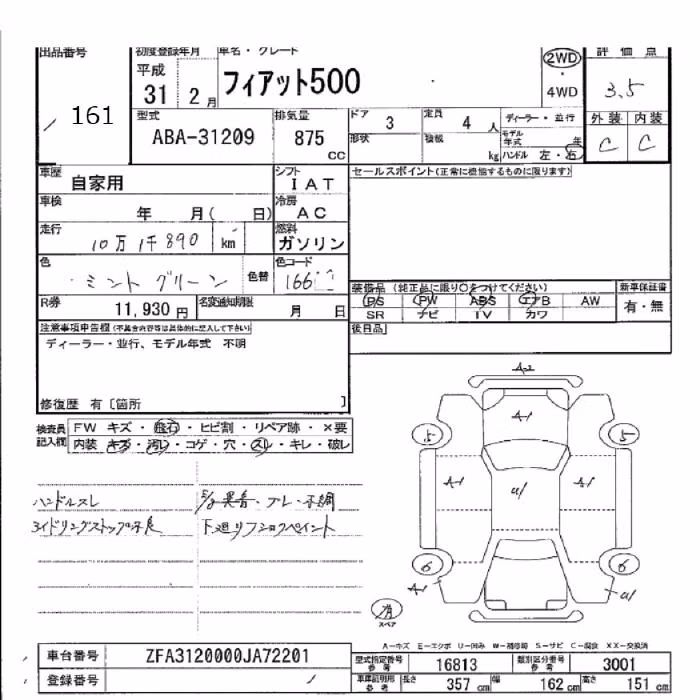 出品番号
161
初度登録年月
平成
31 2 月
車名・グレード
フィアット500
2WD
・
4WD
評価点
3.5
型式
ABA-31209
排気量
875
CC
ドア
3
定員
4 人
形状
積載
kg
ディーラー・並行
モデル
年式 年
ハンドル 左・右
外装 内装
C C
車歴
自家用
シフト
I A T
車検
年 月( 日)
冷房
A C
走行
10万 1千890 km
燃料
ガソリン
色
ミントグリーン
色替
色コード
166
R券
11,930 円
名変通知期限
月 日
セールスポイント(正常に機能するものに限ります)
装備品 (純正品に限り○をつけてください)
P/S PW ABS エアB AW
SR ナビ TV カワ
新車保証書
有・無
後日品
注意事項申告欄(不具合内容等は具体的に記入して下さい)
ディーラー・並行、モデル年式 不明
修復歴 有〔箇所 〕
検査員
記入欄
FW キズ・飛石・ヒビ割・リペア跡・×要
内装 キズ・汚レ・コゲ・穴・スレ・キレ・破レ
ハンドルスレ
アイドリングストップ不良
異音・ブレ・不調
A-2
A-1
5
5
A-1
a/
A-1
6
6
A-1
a/
有
スペア
A-キズ E-エクボ U-凹み W-補修跡 S-サビ C-腐食 XX-交換済
車台番号
ZFA3120000JA72201
登録番号
型式指定番号
参考
16813
類別区分番号
参考
3001
車検証明用
参考
長さ 357 cm
幅 162 cm
高さ 151 cm